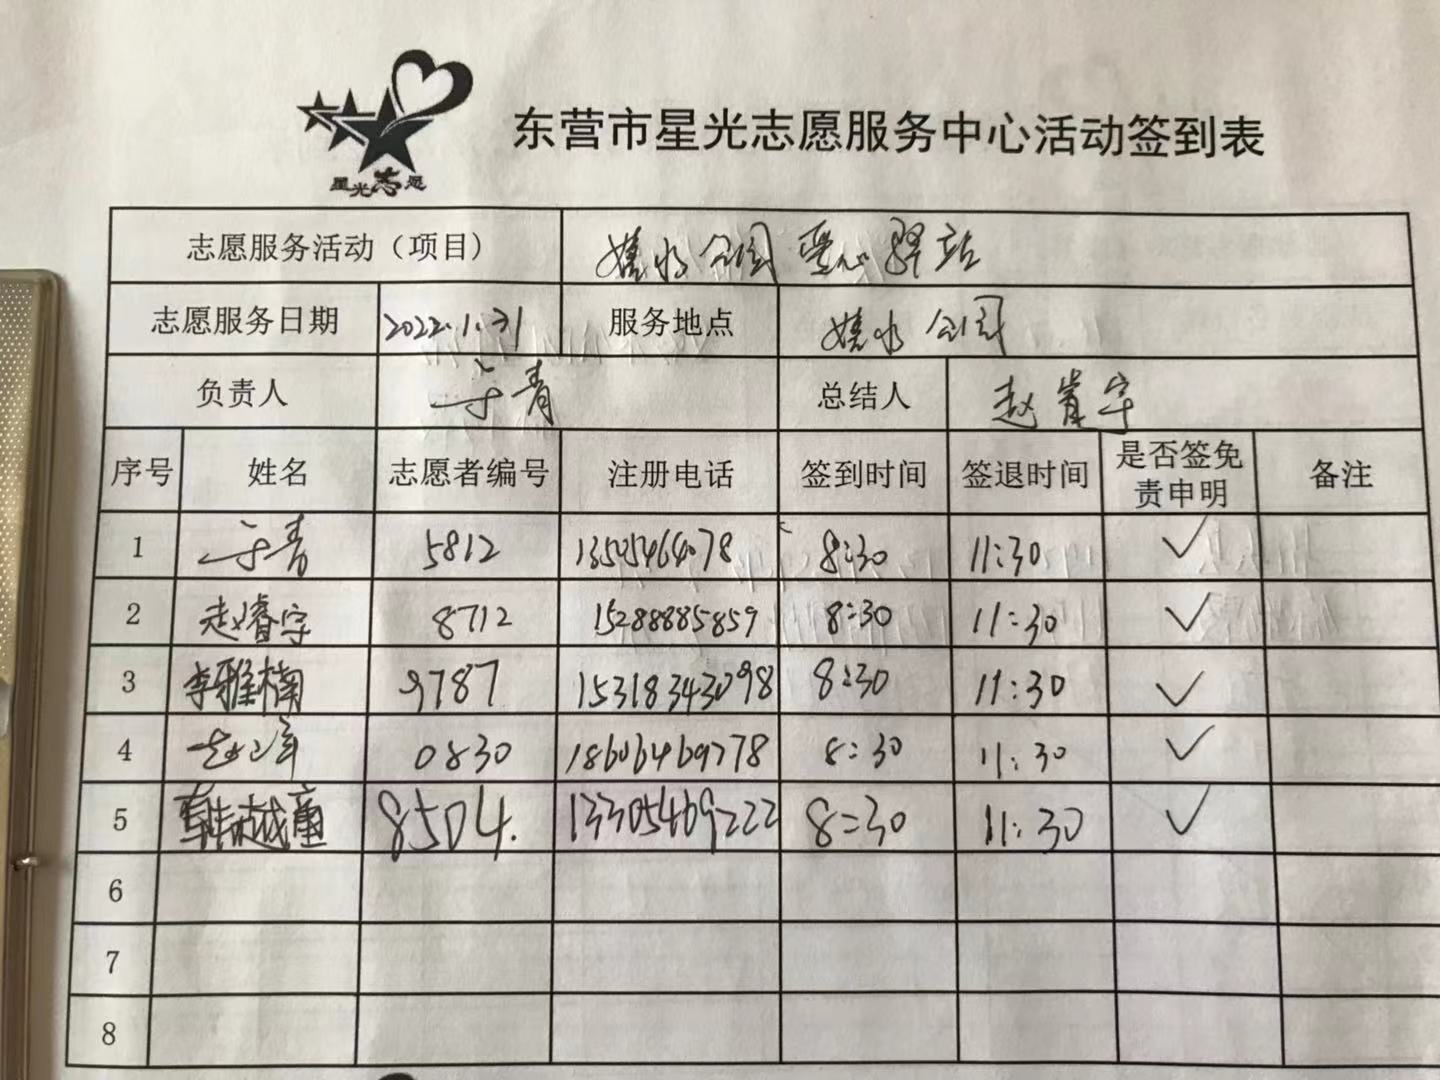 星光志愿
东营市星光志愿服务中心活动签到表
志愿服务活动（项目） 嬉水公园爱心驿站
志愿服务日期 2022.1.31 服务地点 嬉水公园
负责人 于青 总结人 赵睿宇
序号 姓名 志愿者编号 注册电话 签到时间 签退时间 是否签免责申明 备注
1 于青 5812 13505464078 8:30 11:30 ✓
2 赵睿宇 8712 15288885859 8:30 11:30 ✓
3 李雅楠 9787 15318343098 8:30 11:30 ✓
4 0830 18606469778 8:30 11:30 ✓
5 韩越 8504. 13305469222 8:30 11:30 ✓
6
7
8